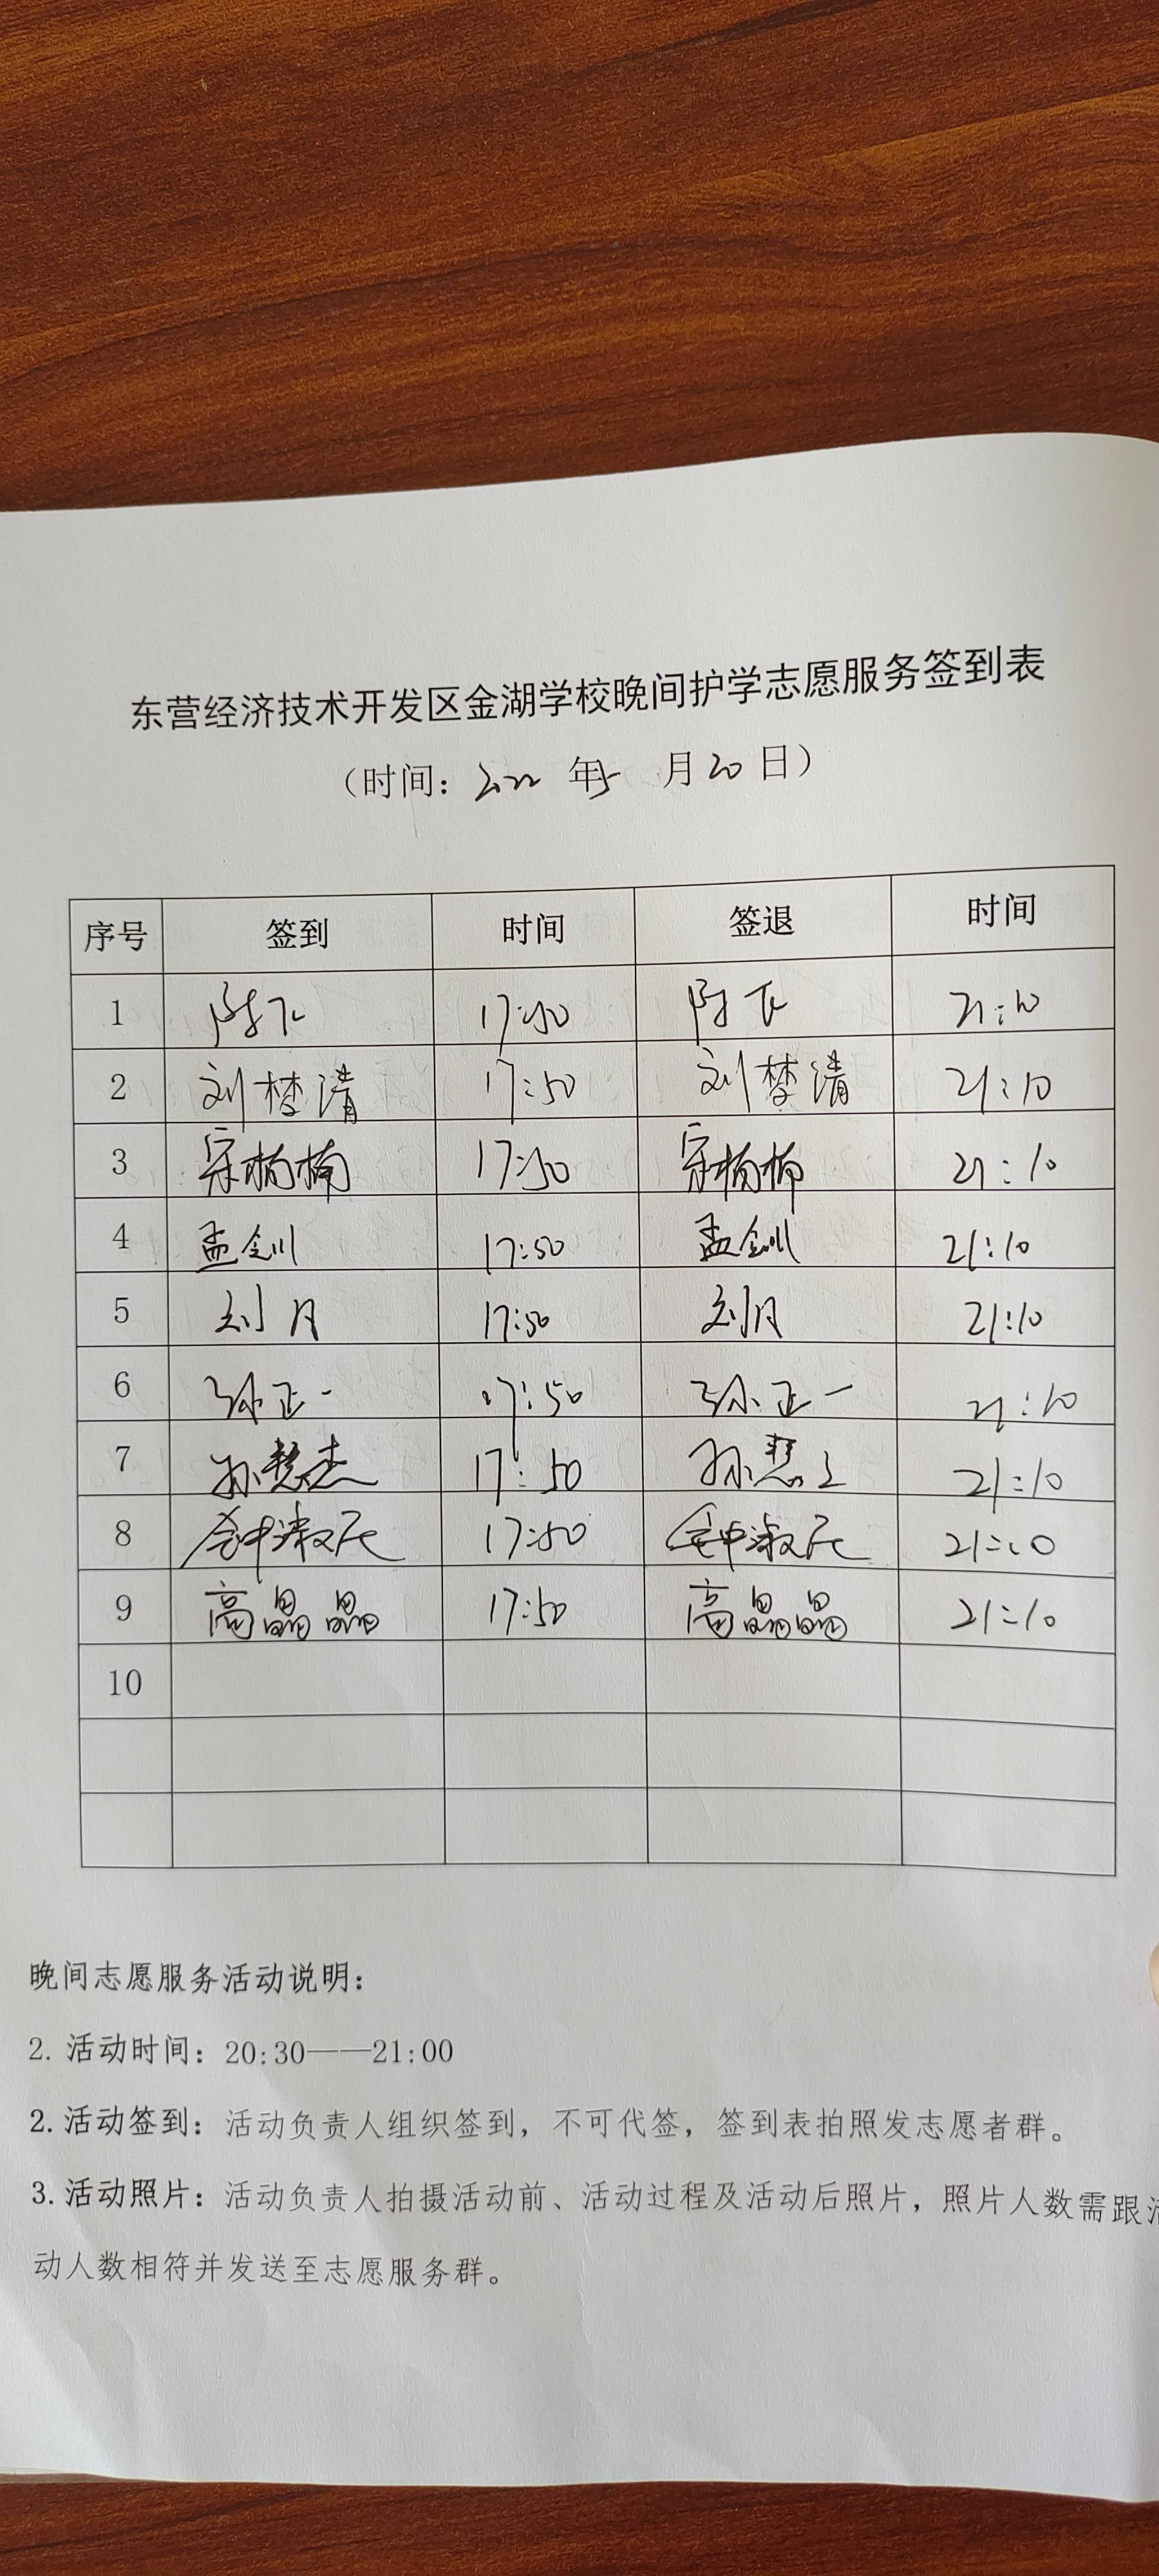 东营经济技术开发区金湖学校晚间护学志愿服务签到表
（时间：2022 年5 月20日）
序号 签到 时间 签退 时间
1 17:50 21:10
2 刘梦清 17:50 刘梦清 21:10
3 宋楠楠 17:50 宋楠楠 21:10
4 孟剑川 17:50 孟剑川 21:10
5 刘月 17:50 刘月 21:10
6 孙正一 17:50 孙正一 21:10
7 孙慧杰 17:50 21:10
8 17:50 21:10
9 高晶晶 17:50 高晶晶 21:10
10
晚间志愿服务活动说明：
2. 活动时间：20:30——21:00
2. 活动签到：活动负责人组织签到，不可代签，签到表拍照发志愿者群。
3. 活动照片：活动负责人拍摄活动前、活动过程及活动后照片，照片人数需跟活
动人数相符并发送至志愿服务群。